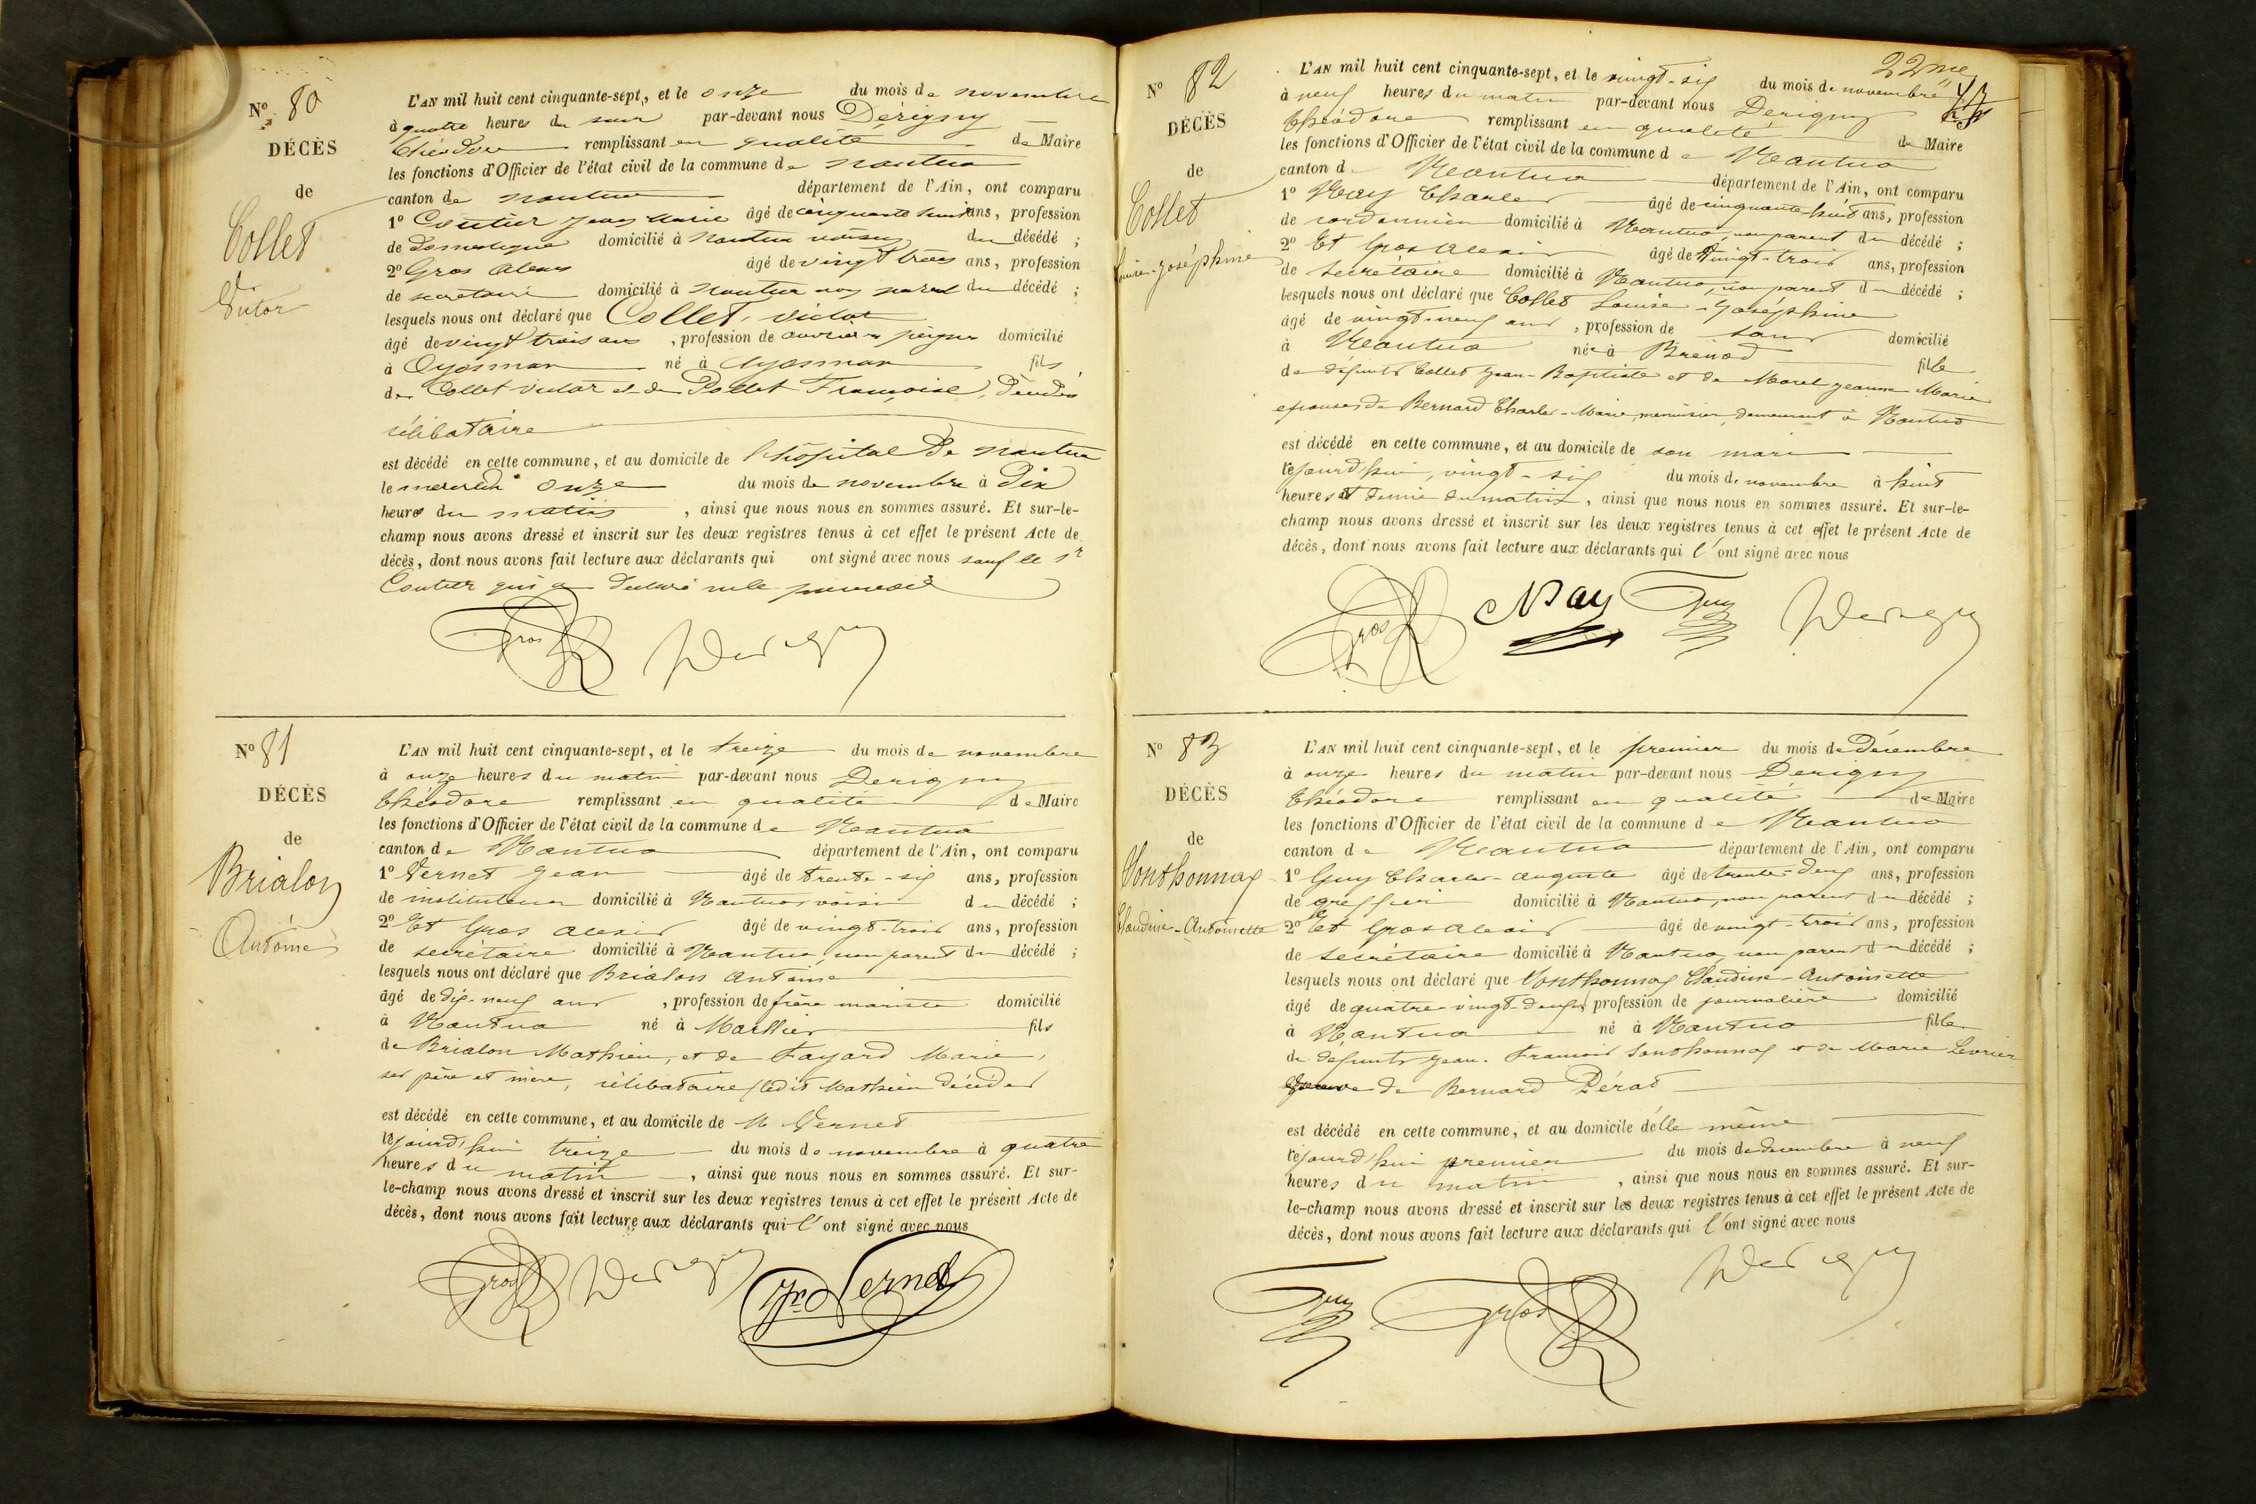 Nº 80
DÉCÈS
de
Collet
Victor
L'AN mil huit cent cinquante-sept, et le onze du mois de novembre
à quatre heures du soir par-devant nous Dérigny
Théodore remplissant en qualité de Maire
les fonctions d'Officier de l'état civil de la commune de nantua
canton de nantua département de l'Ain, ont comparu
1º Coutier Jean Marie âgé de cinquante huit ans, profession
de domestique domicilié à Nantua voisin du décédé ;
2º Gros Alexis âgé de vingt trois ans, profession
de secrétaire domicilié à nantua non parent du décédé ;
lesquels nous ont déclaré que Collet, victor
âgé de vingt trois ans, profession de ouvrier en peigne domicilié
à Oyonnax né à Oyonnax fils
de Collet victor et de Pollet Françoise, décédés
célibataire
est décédé en cette commune, et au domicile de l'hôpital de nantua
le mercredi onze du mois de novembre à Dix
heures du matin, ainsi que nous nous en sommes assuré. Et sur-le-
champ nous avons dressé et inscrit sur les deux registres tenus à cet effet le présent Acte de
décès, dont nous avons fait lecture aux déclarants qui ont signé avec nous sauf le sr
Coutier qui a déclaré ne le pouvoir
Gros Derigny
Nº 81
DÉCÈS
de
Brialon
Antoine
L'AN mil huit cent cinquante-sept, et le treize du mois de novembre
à onze heures du matin par-devant nous Derigny
Théodore remplissant en qualité de Maire
les fonctions d'Officier de l'état civil de la commune de Nantua
canton de Nantua département de l'Ain, ont comparu
1º Vernet Jean âgé de trente-six ans, profession
de instituteur domicilié à Nantua voisin du décédé ;
2º Et Gros Alexis âgé de vingt-trois ans, profession
de secrétaire domicilié à Nantua, non parent du décédé ;
lesquels nous ont déclaré que Brialon Antoine
âgé de dix-neuf ans, profession de frère mariste domicilié
à Nantua né à Marlhier fils
de Brialon Mathieu, et de Fayard Marie,
ses père et mère, célibataire, ledit Mathieu décédé
est décédé en cette commune, et au domicile de M. Vernet
le jourd'hui treize du mois de novembre à quatre
heures du matin, ainsi que nous nous en sommes assuré. Et sur-
le-champ nous avons dressé et inscrit sur les deux registres tenus à cet effet le présent Acte de
décès, dont nous avons fait lecture aux déclarants qui l'ont signé avec nous
Gros Derigny Vernet
22me
Nº 82
DÉCÈS
de
Collet
Louise-Joséphine
L'AN mil huit cent cinquante-sept, et le vingt-six du mois de novembre
à neuf heures du matin par-devant nous Derigny
Théodore remplissant en qualité de Maire
les fonctions d'Officier de l'état civil de la commune de Nantua
canton de Nantua département de l'Ain, ont comparu
1º Nay Charles âgé de cinquante-huit ans, profession
de cordonnier domicilié à Nantua, non parent du décédé ;
2º Et Gros Alexis âgé de vingt-trois ans, profession
de secrétaire domicilié à Nantua, non parent du décédé ;
lesquels nous ont déclaré que Collet Louise-Joséphine
âgé de vingt-neuf ans, profession de sans domicilié
à Nantua née à Brénod fille
de défunts Collet Jean-Baptiste et de Morel Jeanne Marie
épouse de Bernard Charles-Marie, menuisier, demeurant à Nantua
est décédé en cette commune, et au domicile de son mari
le jourd'hui, vingt-six du mois de novembre à huit
heures et demie du matin, ainsi que nous nous en sommes assuré. Et sur-le-
champ nous avons dressé et inscrit sur les deux registres tenus à cet effet le présent Acte de
décès, dont nous avons fait lecture aux déclarants qui l'ont signé avec nous
Gros Nay Guy Derigny
Nº 83
DÉCÈS
de
Sonthonnax
Claudine-Antoinette
L'AN mil huit cent cinquante-sept, et le premier du mois de Décembre
à onze heures du matin par-devant nous Derigny
Théodore remplissant en qualité de Maire
les fonctions d'Officier de l'état civil de la commune de Nantua
canton de Nantua département de l'Ain, ont comparu
1º Guy Charles-Auguste âgé de trente-deux ans, profession
de greffier domicilié à Nantua, non parent du décédé ;
2º Et Gros Alexis âgé de vingt-trois ans, profession
de secrétaire domicilié à Nantua, non parent du décédé ;
lesquels nous ont déclaré que Sonthonnax Claudine-Antoinette
âgé de quatre-vingt-deux, profession de journalière domicilié
à Nantua né à Nantua fille
de défunts Jean-François Sonthonnax et de Marie Levrier
veuve de Bernard Pérat
est décédé en cette commune, et au domicile d'elle même
le jourd'hui premier du mois de décembre à neuf
heures du matin, ainsi que nous nous en sommes assuré. Et sur-
le-champ nous avons dressé et inscrit sur les deux registres tenus à cet effet le présent Acte de
décès, dont nous avons fait lecture aux déclarants qui l'ont signé avec nous
Guy Gros Derigny